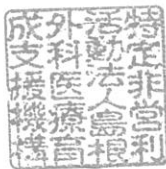 特定非営利
活動法人島根
外科医療育
成支援機構